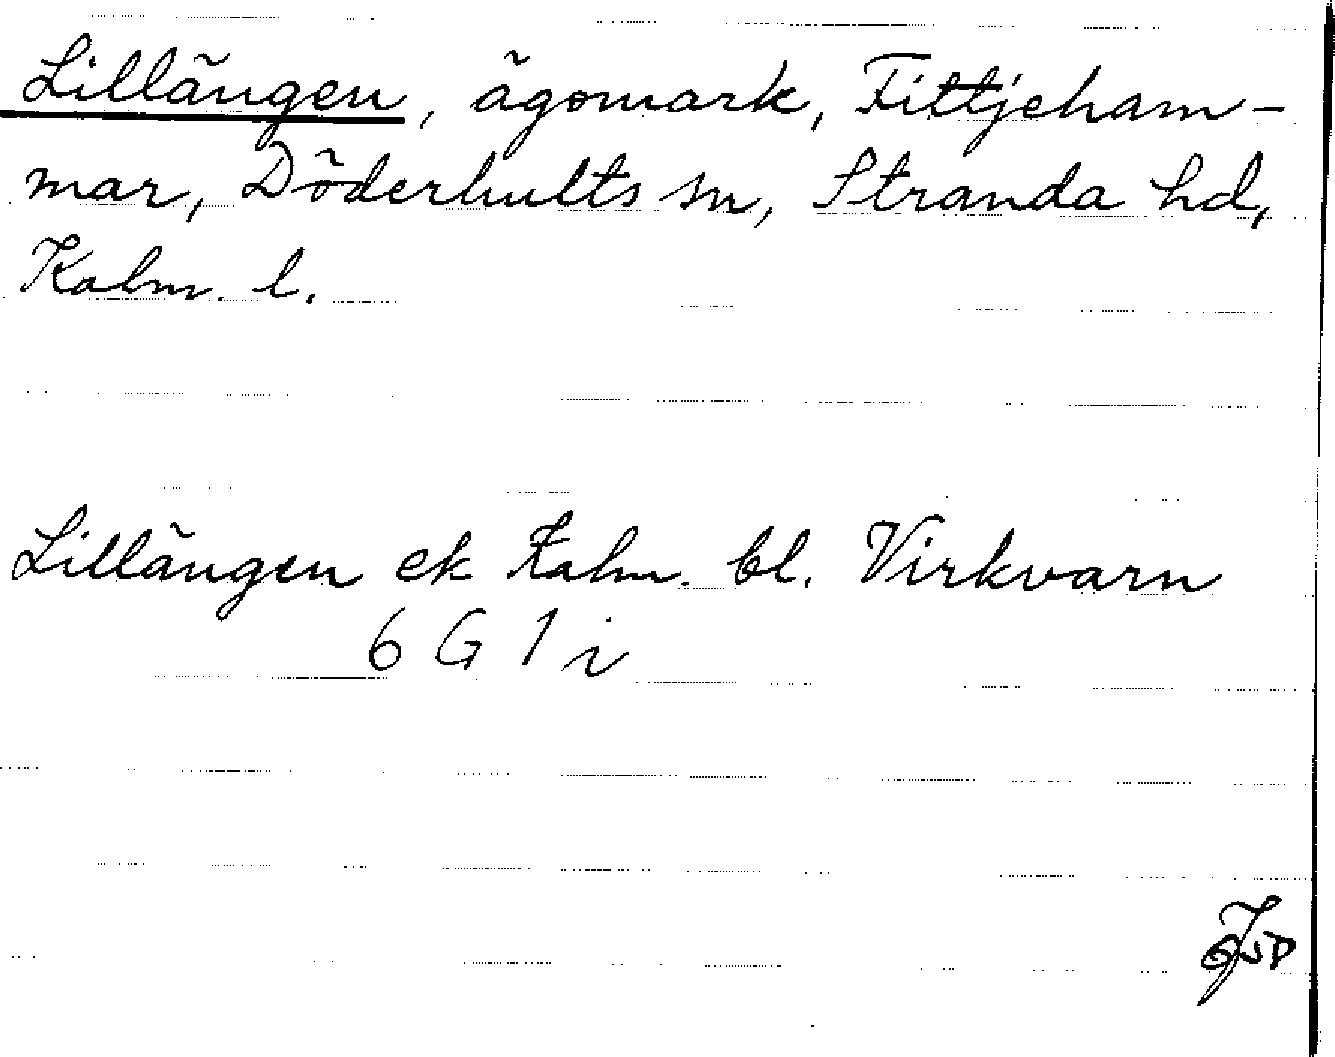 Lillängen, ägomark, Fittjeham-
mar, Döderhults sn, Stranda hd,
Kalm. l.
Lillängen ek Kalm. bl. Virkvarn
6 G 1 i